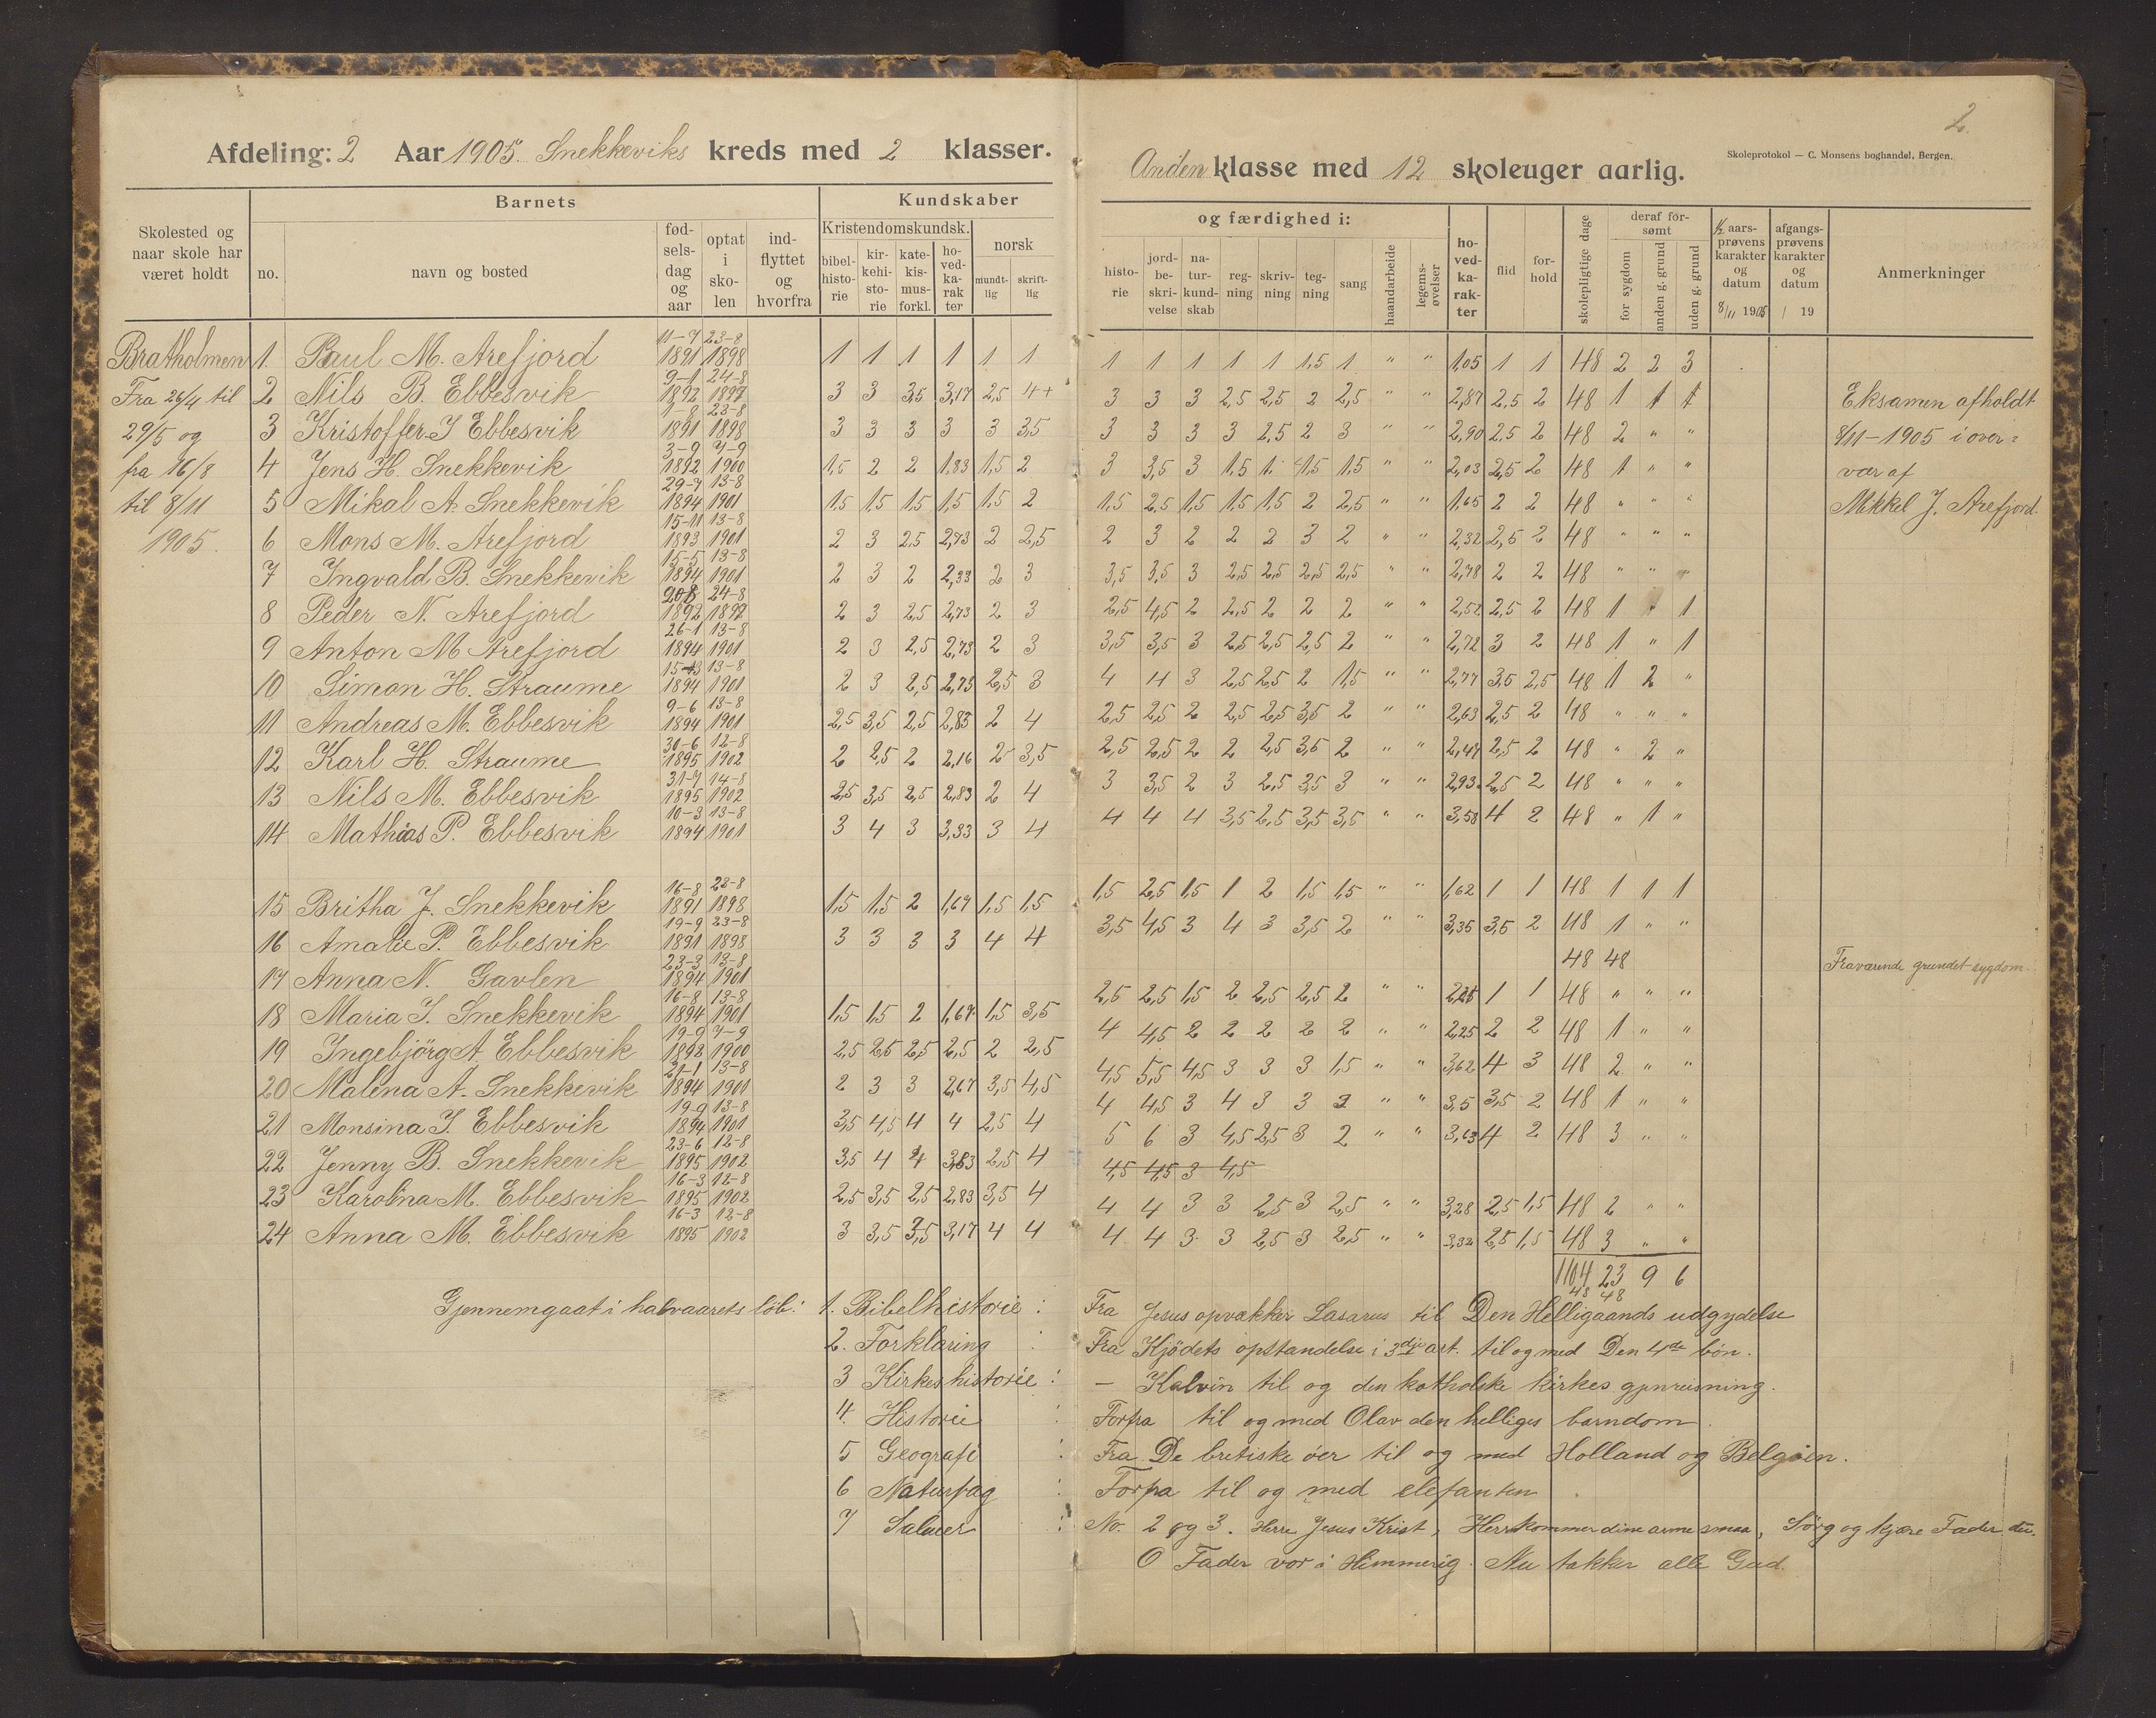 2.
Afdeling: 2 Aar 1905. Snekkeviks kreds med 2 klasser.
Anden klasse med 12 skoleuger aarlig.
Skoleprotokol — C. Monsens boghandel, Bergen.
Skolested og naar skole har været holdt
Barnets
no.
navn og bosted
fødselsdag og aar
optat i skolen
indflyttet og hvorfra
Kundskaber
Kristendomskundsk.
bibelhistorie
kirkehistorie
katekismusforkl.
hovedkarakter
norsk
mundtlig
skriftlig
og færdighed i:
historie
jordbeskrivelse
naturkundskab
regning
skrivning
tegning
sang
haandarbeide
legemsøvelser
hovedkarakter
flid
forhold
skolepligtige dage
deraf forsømt
for sygdom
anden g. grund
uden g. grund
½ aarsprøvens karakter og datum
8/11 1905
afgangsprøvens karakter og datum
/ 19
Anmerkninger
Bratholmen
Fra 26/4 til
29/5 og
fra 16/8
til 8/11
1905.
1. Paul M. Arefjord 11-7 1891 23-8 1898 1 1 1 1 1 1 1 1 1 1 1 1,5 1 " " 1,05 1 1 48 2 2 3
2 Nils B. Ebbesvik 9-1 1892 24-8 1897 3 3 3,5 3,17 2,5 4+ 3 3 3 2,5 2,5 2 2,5 " " 2,87 2,5 2 48 1 1 1
3 Kristoffer J Ebbesvik 1-8 1891 23-8 1898 3 3 3 3 3 3,5 3 3 3 3 2,5 2 3 " " 2,90 2,5 2 48 2 " "
4 Jens H. Snekkevik 3-9 1892 7-9 1900 1,5 2 2 1,83 1,5 2 3 3,5 3 1,5 1. 1,5 1,5 " " 2,03 2,5 2 48 1 " "
5 Mikal A. Snekkevik 29-7 1894 13-8 1901 1,5 1,5 1,5 1,5 1,5 2 1,5 2,5 1,5 1,5 1,5 2 2,5 " " 1,65 2 2 48 " " "
6 Mons M. Arefjord 15-11 1893 13-8 1901 2 3 2,5 2,73 2 2,5 2 3 2 2 2 3 2 " " 2,32 2,5 2 48 " " "
7 Ingvald B. Snekkevik 15-5 1894 13-8 1901 2 3 2 2,33 2 3 3,5 3,5 3 2,5 2,5 2,5 2,5 " " 2,78 2 2 48 " " "
8 Peder N. Arefjord 1892 24-8 1897 2 3 2,5 2,73 2 3 2,5 4,5 2 2,5 2 2 2 " " 2,52 2,5 2 48 1 " 1
9 Anton M Arefjord 26-1 1894 13-8 1901 2 3 2,5 2,73 2 3 3,5 3,5 3 2,5 2,5 2,5 2 " " 2,72 3 2 48 1 " 1
10 Simon H. Straume 1894 13-8 1901 2 3 2,5 2,73 2,5 3 4 4 3 2,5 2,5 2 1,5 " " 2,77 3,5 2,5 48 1 2 "
11 Andreas M. Ebbesvik 9-6 1894 13-8 1901 2,5 3,5 2,5 2,83 2 4 2,5 2,5 2 2,5 2,5 3,5 2 " " 2,63 2,5 2 48 " " "
12 Karl H. Straume 30-6 1895 12-8 1902 2 2,5 2 2,16 2 3,5 2,5 2,5 2 2 2,5 3,5 2 " " 2,47 2,5 2 48 " 2 "
13 Nils M. Ebbesvik 31-7 1895 14-8 1902 2,5 3,5 2,5 2,83 2 4 3 3,5 2 3 2,5 3,5 3 " " 2,93 2,5 2 48 " " "
14 Mathias P. Ebbesvik 10-3 1894 13-8 1901 3 4 3 3,33 3 4 4 4 4 3,5 2,5 3,5 3,5 " " 3,58 4 2 48 " 1 "
15 Britha J. Snekkevik 16-8 1891 23-8 1898 1,5 1,5 2 1,67 1,5 1,5 1,5 2,5 1,5 1 2 1,5 1,5 " " 1,62 1 1 48 1 1 1
16 Amalie P. Ebbesvik 19-9 1891 23-8 1898 3 3 3 3 4 4 3,5 4,5 3 4 3 3,5 2 " " 3,35 3,5 2 48 1 " "
17 Anna N. Gavlen 23-3 1894 13-8 1901 48 48 Fraværende grundet sygdom
18 Maria J. Snekkevik 16-8 1894 13-8 1901 1,5 1,5 2 1,67 1,5 3,5 2,5 2,5 1,5 2 2,5 2,5 2 " " 1 1 48 " " "
19 Ingebjörg A. Ebbesvik 19-9 1893 7-9 1900 2,5 2,5 2,5 2,5 2 2,5 4 4,5 2 2 2 2 2 " " 2,25 2 2 48 1 " "
20 Malena A. Snekkevik 21-1 1894 13-8 1901 2 3 3 2,67 3,5 4,5 4,5 5,5 4,5 3 3 3 1,5 " " 3,62 4 3 48 2 " "
21 Monsina J. Ebbesvik 19-9 1894 13-8 1901 3,5 4,5 4 4 2,5 4 4 4,5 3 4 3 3 2 " " 3,5 3,5 2 48 1 " "
22 Jenny B. Snekkevik 23-6 1895 12-8 1902 3,5 4 4 3,83 2,5 4 5 6 3 4,5 2,5 3 2 " " 3,63 4 2 48 3 " "
4,5 4,5 3 4,5
23 Karolina M. Ebbesvik 16-3 1895 12-8 1902 2,5 3,5 2,5 2,83 3,5 4 4 4 3 3 2,5 3 2,5 " " 3,28 2,5 1,5 48 2 " "
24 Anna M. Ebbesvik 16-3 1895 12-8 1902 3 3,5 3,5 3,17 4 4 4 4 3 3 2,5 3 2,5 " " 3,32 2,5 1,5 48 3 " "
1104 23 9 6
48 48
Eksamen afholdt
8/11-1905 i over=
vær af
Mikkel J. Arefjord.
Gjennemgaat i halvaarets løb: 1. Bibelhistorie : Fra Jesus opvækker Lasarus til Den Helligaands udgydelse
2. Forklaring : Fra Kjödets opstandelse i 3die art. til og med Den 4de bön.
3 Kirkeshistorie : — Kalvin til og den katholske kirkes gjenreisning.
4. Historie : Forfra til og med Olav den helliges barndom.
5 Geografi : Fra De britiske öer til og med Holland og Belgien.
6 Naturfag : Forfra til og med elefanten.
7 Salmer : No. 2 og 3. Herre Jesus Krist, Her kommer dine arme smaa, Sörg og kjære Fader du.
O Fader vor i Himmerig. Nu takker alle Gud.